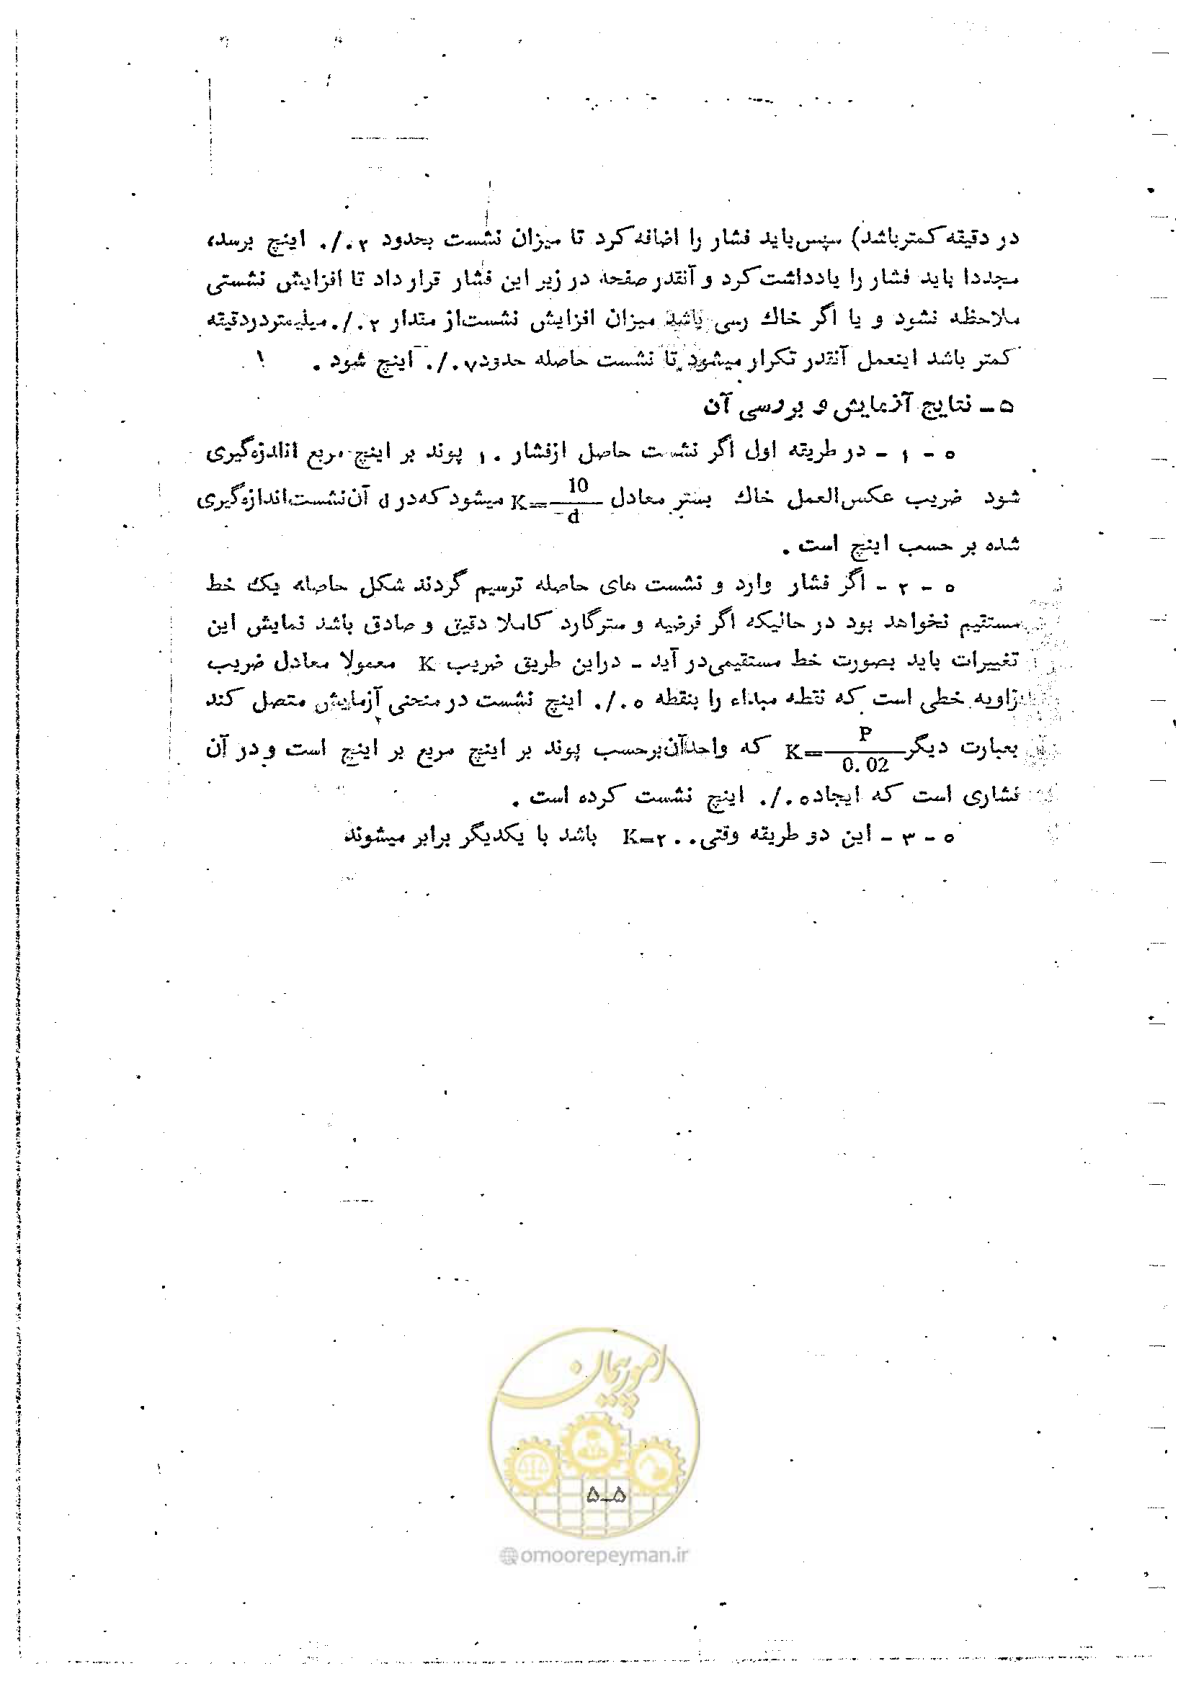 در دقیقه کمتر باشد) سپس باید فشار را اضافه کرد تا میزان نشست بحدود ۰/۰۲ اینچ برسد،
مجددا باید فشار را یادداشت کرد و آنقدر صفحه در زیر این فشار قرار داد تا افزایش نشستی
ملاحظه نشود و یا اگر خاك رسی باشد میزان افزایش نشست از مقدار ۰/۰۲ میلیمتر در دقیقه
کمتر باشد اینعمل آنقدر تکرار میشود تا نشست حاصله حدود ۰/۰۷ اینچ شود .
۵ – نتایج آزمایش و بررسی آن
۵ – ۱ – در طریقه اول اگر نشست حاصل از فشار ۱۰ پوند بر اینچ مربع اندازه‌گیری
شود ضریب عکس‌العمل خاك بستر معادل K=10/d میشود که در d آن نشست اندازه‌گیری
شده بر حسب اینچ است .
۵ – ۲ – اگر فشار وارد و نشست های حاصله ترسیم گردند شکل حاصله یك خط
مستقیم نخواهد بود در حالیکه اگر فرضیه وسترگارد کاملا دقیق و صادق باشد نمایش این
تغییرات باید بصورت خط مستقیمی در آید – در این طریق ضریب K معمولا معادل ضریب
زاویه خطی است که نقطه مبداء را بنقطه ۰/۰۵ اینچ نشست در منحنی آزمایش متصل کند
بعبارت دیگر K=P/0.02 که واحد آن برحسب پوند بر اینچ مربع بر اینچ است و در آن
فشاری است که ایجاد ۰/۰۵ اینچ نشست کرده است .
۵ – ۳ – این دو طریقه وقتی K=۲۰۰ باشد با یکدیگر برابر میشوند
امور پیمان
۵–۵
@omoorepeyman.ir